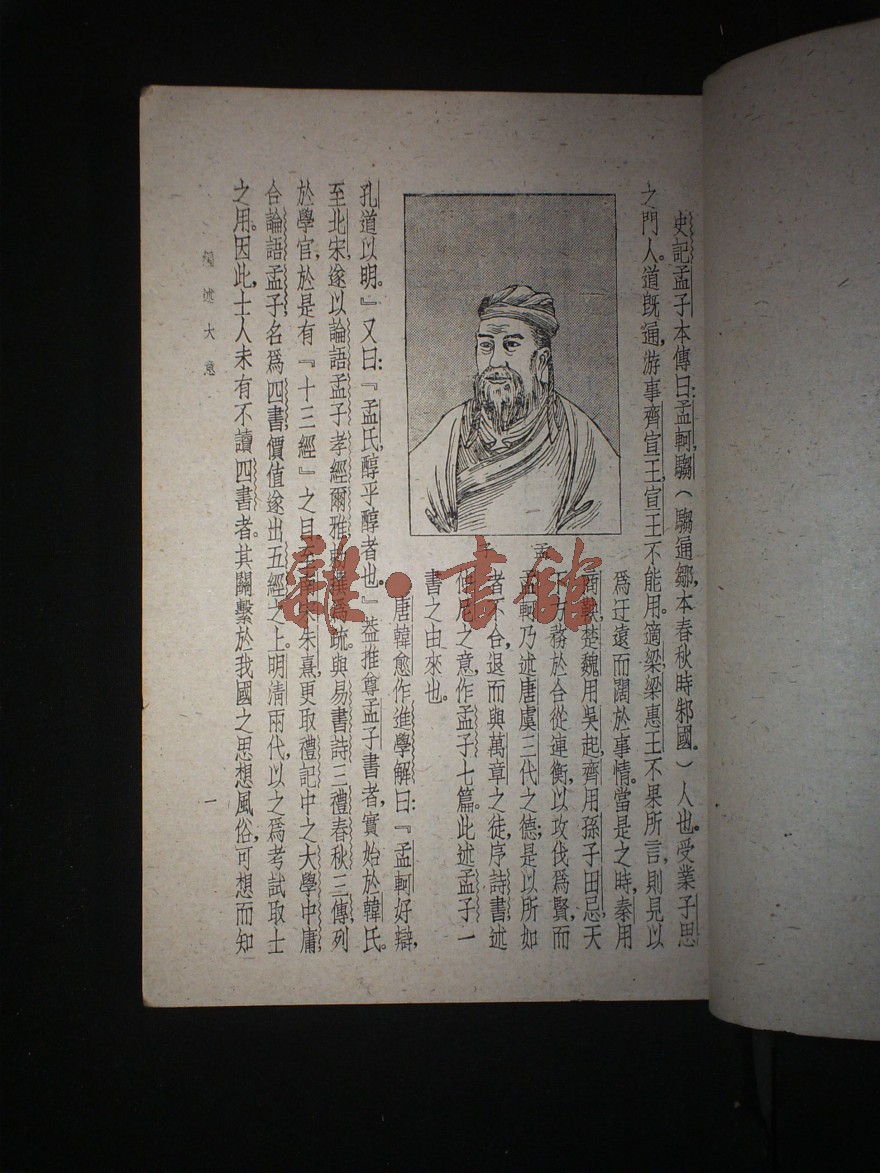 史記孟子本傳曰：孟軻，騶（騶通鄒，本春秋時邾國。）人也。受業子思
之門人。道旣通，游事齊宣王，宣王不能用。適梁，梁惠王不果所言，則見以
爲迂遠而闊於事情。當是之時，秦用
商鞅，楚魏用吳起，齊用孫子田忌，天
下方務於合從連衡，以攻伐爲賢，而
孟軻乃述唐虞三代之德；是以所如
者不合，退而與萬章之徒，序詩書，述
仲尼之意，作孟子七篇。此述孟子一
書之由來也。
孟子
唐韓愈作進學解曰：『孟軻好辯，
孔道以明。』又曰：『孟氏，醇乎醇者也。』蓋推尊孟子書者，實始於韓氏。
至北宋，遂以論語孟子孝經爾雅撰爲疏。與易書詩三禮春秋三傳，列
於學官，於是有『十三經』之目。至南宋朱熹，更取禮記中之大學中庸，
合論語孟子，名爲四書，價值遂出五經之上。明清兩代，以之爲考試取士
之用。因此，士人未有不讀四書者。其關繫於我國之思想風俗，可想而知
述大意
一
雜·書館